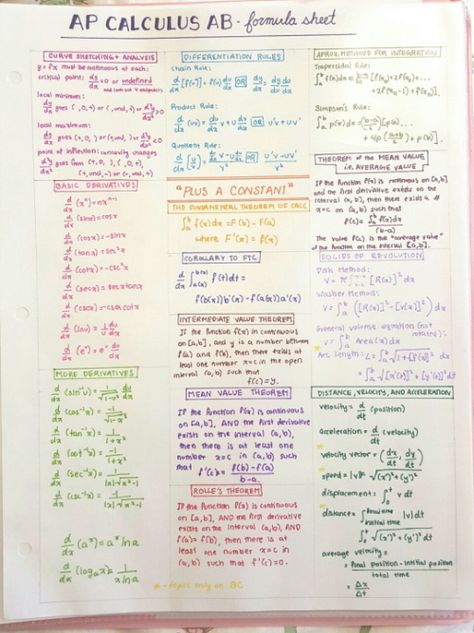 AP CALCULUS AB - formula sheet
CURVE SKETCHING + ANALYSIS
y = f(x) must be continuous at each:
critical point: dy/dx = 0 or undefined
local minimum:
dy/dx goes (-,0,+) or (-,und,+) or d²y/dx² > 0
local maximum:
dy/dx goes (+,0,-) or (+,und,-) or d²y/dx² < 0
point of inflection: concavity changes
d²y/dx² goes from (+,0,-), (-,0,+)
(+,und,-) or (-,und,+)
BASIC DERIVATIVES
d/dx (xⁿ) = nxⁿ⁻¹
d/dx (sinx) = cosx
d/dx (cosx) = -sinx
d/dx (tanx) = sec²x
d/dx (cotx) = -csc²x
d/dx (secx) = secxtanx
d/dx (cscx) = -cscxcotx
d/dx (lnu) = 1/u du/dx
d/dx (eᵘ) = eᵘ du/dx
MORE DERIVATIVES
d/dx (sin⁻¹u) = 1/√1-u² du/dx
d/dx (cos⁻¹x) = -1/√1-x²
d/dx (tan⁻¹x) = 1/1+x²
d/dx (cot⁻¹x) = -1/1+x²
d/dx (sec⁻¹x) = 1/|x|√x²-1
d/dx (csc⁻¹x) = -1/|x|√x²-1
d/dx (aˣ) = aˣ ln a
d/dx (logₐx) = 1/x ln a
DIFFERENTIATION RULES
Chain Rule:
d/dx [f(u)] = f'(u) du/dx OR dy/dx = dy/du du/dx
Product Rule:
d/dx (uv) = du/dx v + u dv/dx OR u'v + uv'
Quotient Rule:
d/dx (u/v) = du/dx v - u dv/dx / v² OR u'v - uv' / v²
"PLUS A CONSTANT"
THE FUNDAMENTAL THEOREM OF CALC
∫ₐᵇ f(x)dx = F(b) - F(a)
where F'(x) = f(x)
COROLLARY TO FTC
d/dx ∫ f(t)dt =
f(b(x))b'(x) - f(a(x))a'(x)
INTERMEDIATE VALUE THEOREM
If the function f(x) is continuous
on [a,b], and y is a number between
f(a) and f(b), then there exists at
least one number x=c in the open
interval (a,b) such that
f(c)=y.
MEAN VALUE THEOREM
If the function f(x) is continuous
on [a,b], AND the first derivative
exists on the interval (a,b),
then there is at least one
number x=c in (a,b) such
that f'(c) = f(b) - f(a) / b-a.
ROLLE'S THEOREM
If the function f(x) is continuous
on [a,b], AND the first derivative
exists on the interval (a,b), AND
f(a) = f(b), then there is at
least one number x=c in
(a,b) such that f'(c)=0.
- topic only on BC
APROX. METHODS FOR INTEGRATION
Trapezoidal Rule:
Simpson's Rule:
THEOREM of the MEAN VALUE
i.e. AVERAGE VALUE
If the function f(x) is continuous on [a,b],
and the first derivative exists on the
interval (a,b), then there exists a #
x=c on (a,b) such that
f(c) = ∫ₐᵇ f(x)dx / (b-a)
The value f(c) is the "average value"
of the function on the interval [a,b].
SOLIDS OF REVOLUTION
Disk Method:
V = π ∫ [R(x)]² dx
Washer Method:
V = π ∫ₐᵇ ([R(x)]² - [r(x)]²) dx
General volume equation (not
rotated):
V = ∫ₐᵇ Area(x) dx
Arc Length: L = ∫ₐᵇ √1+[f'(x)]² dx
= ∫ₐᵇ √[x'(t)]² + [y'(t)]² dt
DISTANCE, VELOCITY, AND ACCELERATION
velocity = d/dt (position)
acceleration = d/dt (velocity)
velocity vector = ⟨dx/dt, dy/dt⟩
speed = |v| = √(x')² + (y')²
displacement = ∫ v dt
distance = ∫ |v| dt
final time
initial time
∫ √(x')² + (y')² dt
average velocity =
= final position - initial position / total time
= Δx/Δt